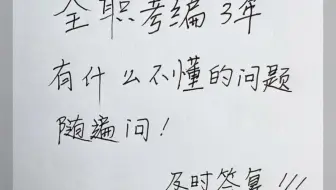 全职考编3年
有什么不懂的问题
随遍问！
及时答复！！！